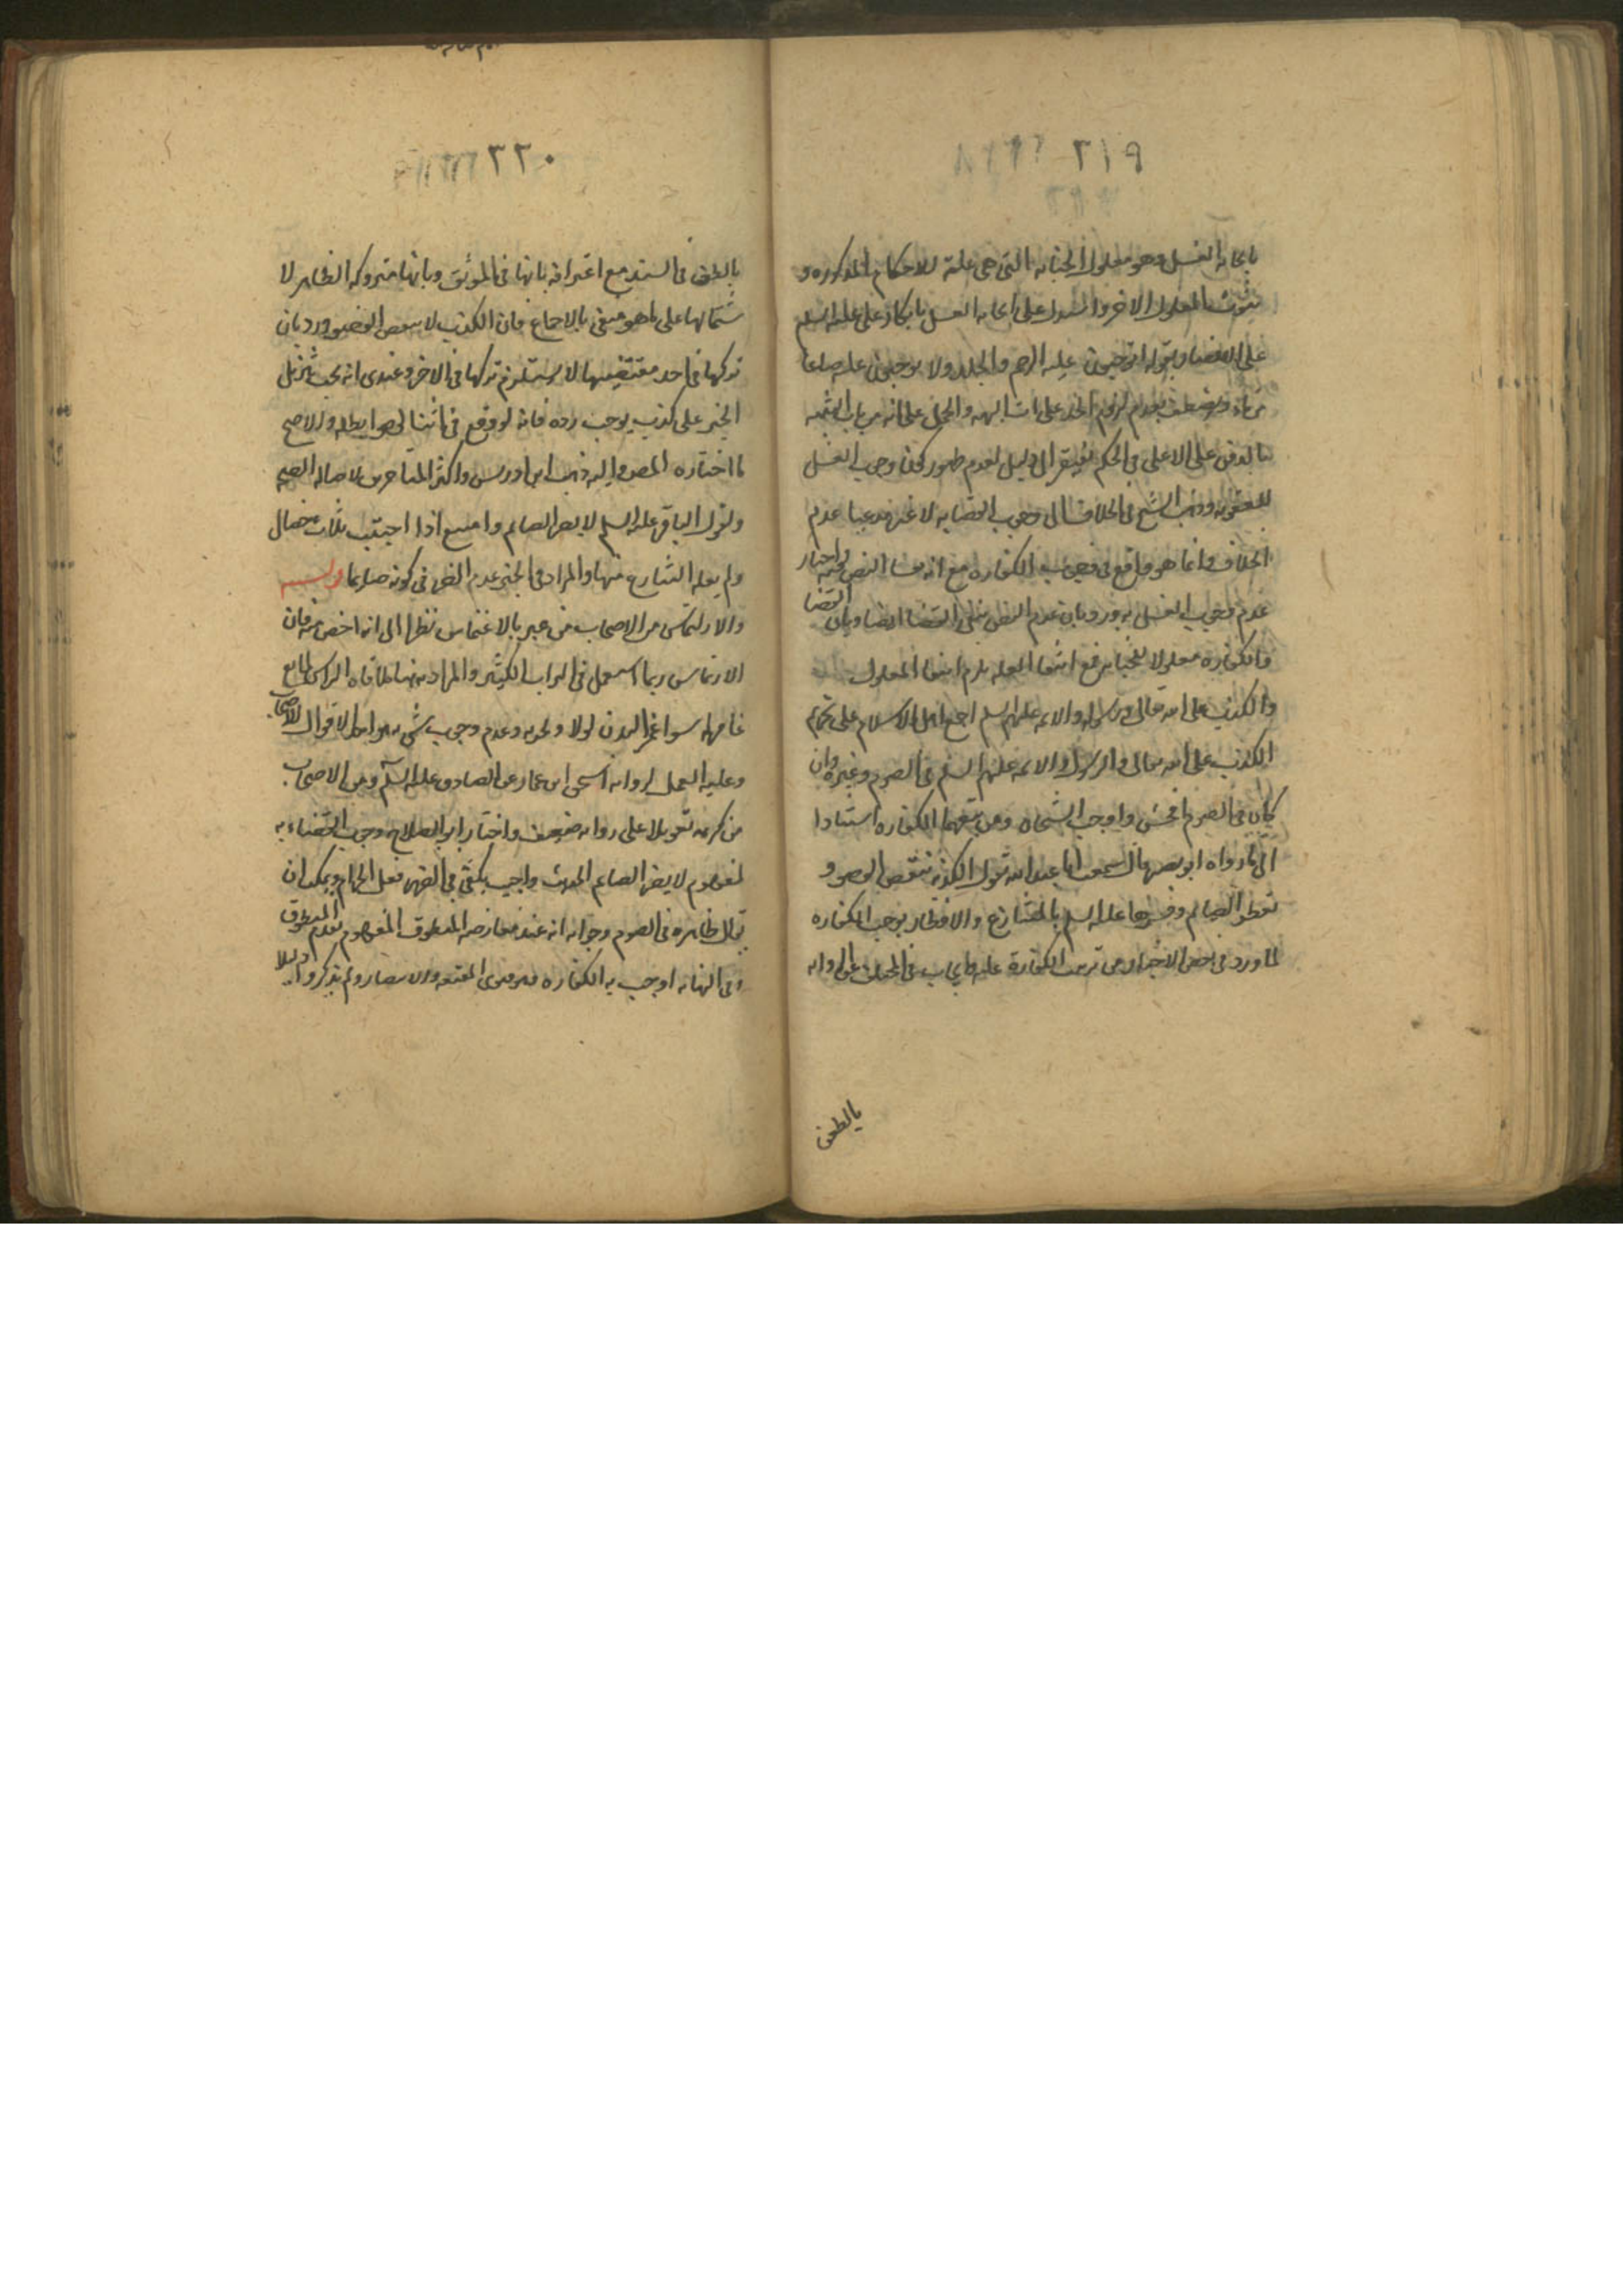 ٢١٩
بايجابه الغسل وهو معلول الجنابه التى هى علة للاحكام المذكوره و
ثبوت المعلول الاخر واستدل على ايجابه الغسل بانكار على عليه السلم
على الانصار بقوله اتوجبون عليه الرجم والجلد ولا توجبون عليه صاعا
من ماء ويضعف بعدم لزوم الحد على اتيان البهيمه والحمل على انه من باب التنبيه
بالادنى على الاعلى فى الحكم يفتقر الى دليل لعدم ظهور كون وجوب الغسل
للعقوبه وذهب الشيخ فى الخلاف الى وجوب القضا به لا غير مدعيا عدم
الخلاف وانما هو واقع فى وجوب الكفاره مع انه نفا النص فيه واختار
عدم وجوب الغسل به ورد بان عدم النص ينفى القضا ايضا وبان القضا
والكفاره معلولا للجنابه فمع انتفا العله يلزم انتفا المعلول
والكذب على الله تعالى ورسوله والائمه عليهم السلم اجمع اهل الاسلام على تحريم
الكذب على الله تعالى والرسول والائمه عليهم السلم فى الصوم وغيره وان
كان فى الصوم افحش واوجب الشيخان ومن تبعهما الكفاره استنادا
الى ما رواه ابو بصير قال سمعت ابا عبد الله يقول الكذبه تنقض الوضوء و
تفطر الصائم وفسرها عليه السلم بالمتنازع والافطار يوجب الكفاره
لما ورد فى بعض الاخبار من ترتب الكفارة عليه واجاب فى المختلف عن الروايه
بالطعن
٢٢٠
بالطعن فى السند مع اعترافه بانها فى الموثق وبانها متروكه الظاهر لا
شتمالها على ما هو منفى بالاجماع فان الكذب لا ينقض الوضوء ورد بان
تركها فى احد مقتضييها لا يستلزم تركها فى الاخر وعندى انه يجب تنزيل
الخبر على كذب يوجب رده فانه لو وقع فى اثنا الوضوء ابطله والاصح
ما اختاره المص واليه ذهب ابن ادريس واكثر المتاخرين لاصاله الصحه
ولقول الباقر عليه السلم لا يضر الصائم ما صنع اذا اجتنب ثلاث خصال
ولم يعد الشارع منها والمراد فى الخبر عدم الضرر فى كونه صائما
والارتماس من الاصحاب من عبر بالاغتماس نظرا الى انه اخص منه فان
الارتماس ربما استعمل فى التراب الكثير والمراد منهما ملاقاه الراس لمايع
غامر له سوا غمر البدن اولا وتحريمه وعدم وجوب شى به هو احد الاقوال للاصحاب
وعليه العمل لروايه اسحق ابن عمار عن الصادق عليه السلم ومن الاصحاب
من كرهه تعويلا على روايه ضعيفه واختار ابو الصلاح وجوب القضاء به
لمفهوم لا يضر الصائم الحديث واجيب يكفى فى الضرر فعل الحرام ويمكن ان
يقال ظاهره فى الصوم وجوابه انه عند معارضه المنطوق المفهوم يقدم المنطوق
وفى النهايه اوجب به الكفاره وهو فتوى المقنعه والانتصار ولم يذكروا دليلا